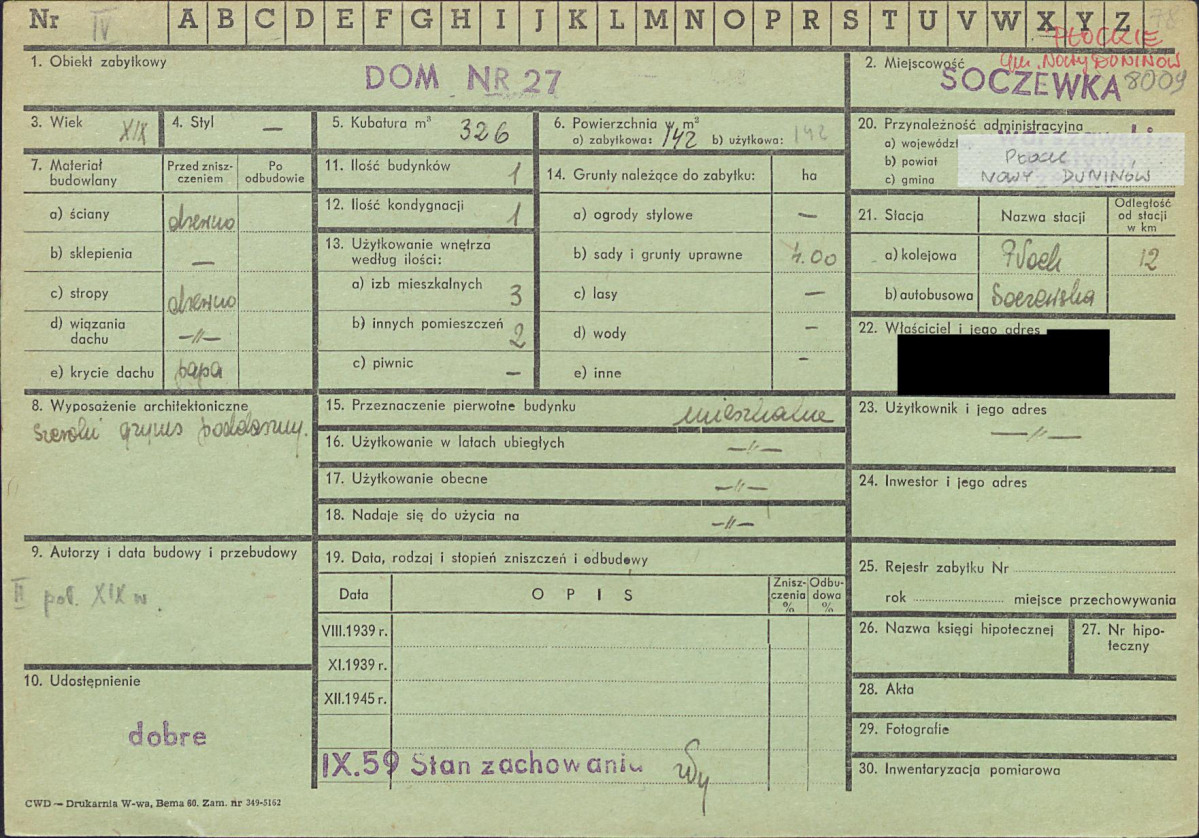 Nr IV A B C D E F G H I J K L M N O P R S T U V W X Y Z 78
PŁOCKIE
gm. NOWY DUNINÓW
8009
1. Obiekt zabytkowy
DOM NR 27
2. Miejscowość
SOCZEWKA
3. Wiek XIX
4. Styl —
5. Kubatura m³ 326
6. Powierzchnia w m²
a) zabytkowa: 142 b) użytkowa: 142
7. Materiał budowlany
Przed zniszczeniem
Po odbudowie
a) ściany drewno
b) sklepienia —
c) stropy drewno
d) wiązania dachu —〃—
e) krycie dachu papa
8. Wyposażenie architektoniczne
Szeroki gzyms poddaszny.
9. Autorzy i data budowy i przebudowy
II poł. XIX w.
10. Udostępnienie
dobre
11. Ilość budynków 1
12. Ilość kondygnacji 1
13. Użytkowanie wnętrza
według ilości:
a) izb mieszkalnych 3
b) innych pomieszczeń 2
c) piwnic —
14. Grunty należące do zabytku: ha
a) ogrody stylowe —
b) sady i grunty uprawne 4.00
c) lasy —
d) wody —
e) inne -
15. Przeznaczenie pierwotne budynku mieszkalne
16. Użytkowanie w latach ubiegłych —〃—
17. Użytkowanie obecne —〃—
18. Nadaje się do użycia na —〃—
19. Data, rodzaj i stopień zniszczeń i odbudowy
Data O P I S Zniszczenia % Odbudowa %
VIII.1939 r.
XI.1939 r.
XII.1945 r.
IX.59 Stan zachowania
20. Przynależność administracyjna
a) wojewódz
b) powiat
c) gmina
PŁOCK
NOWY DUNINÓW
21. Stacja Nazwa stacji Odległość od stacji w km
a) kolejowa Płock 12
b) autobusowa Soczewka
22. Właściciel i jego adres
23. Użytkownik i jego adres
—〃—
24. Inwestor i jego adres
25. Rejestr zabytku Nr
rok miejsce przechowywania
26. Nazwa księgi hipotecznej
27. Nr hipoteczny
28. Akta
29. Fotografie
30. Inwentaryzacja pomiarowa
CWD — Drukarnia W-wa, Bema 60. Zam. nr 349-5162